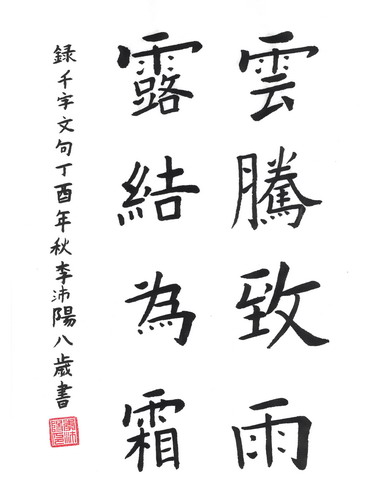 雲騰致雨
露結為霜
録千字文句丁酉年秋李沛陽八歲書